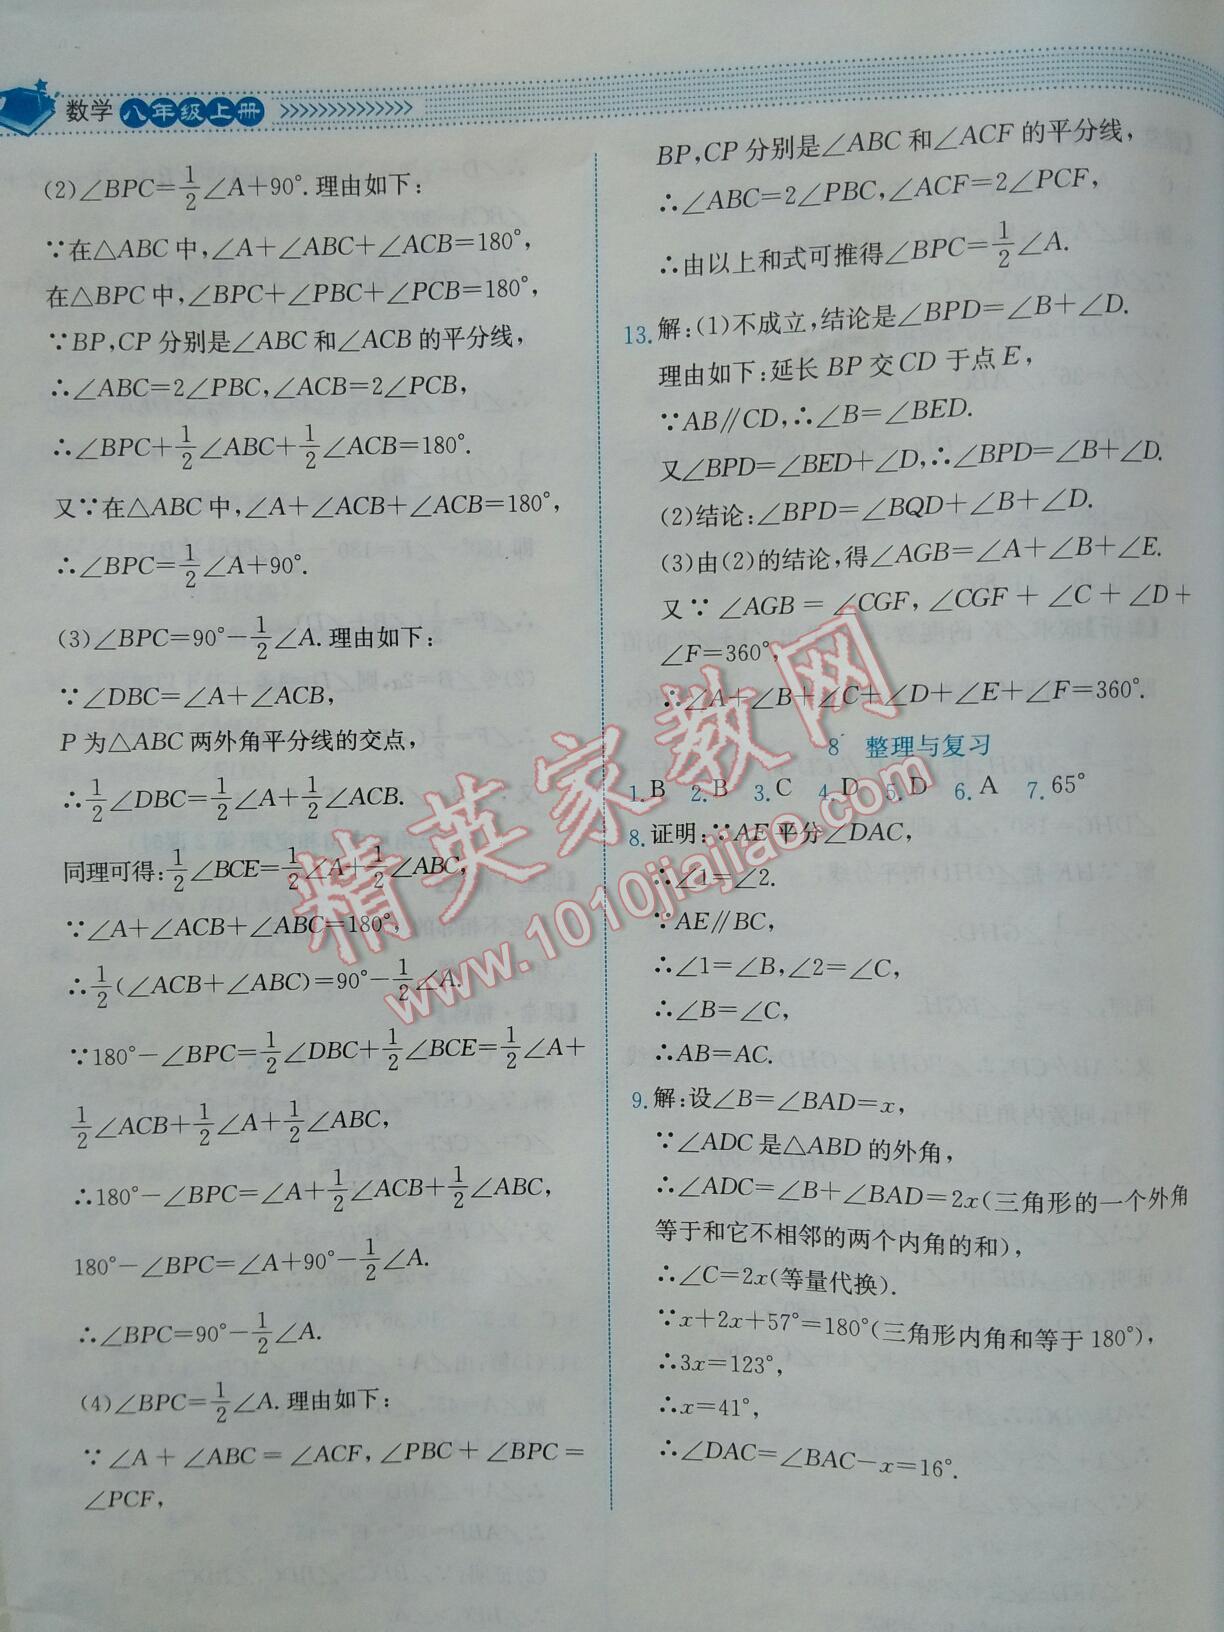 数学 八年级上册
(2)∠BPC=1/2∠A+90°.理由如下:
∵在△ABC中,∠A+∠ABC+∠ACB=180°,
在△BPC中,∠BPC+∠PBC+∠PCB=180°,
∵BP,CP分别是∠ABC和∠ACB的平分线,
∴∠ABC=2∠PBC,∠ACB=2∠PCB,
∴∠BPC+1/2∠ABC+1/2∠ACB=180°.
又∵在△ABC中,∠A+∠ACB+∠ACB=180°,
∴∠BPC=1/2∠A+90°.
(3)∠BPC=90°-1/2∠A.理由如下:
∵∠DBC=∠A+∠ACB,
P为△ABC两外角平分线的交点,
∴1/2∠DBC=1/2∠A+1/2∠ACB.
同理可得:1/2∠BCE=1/2∠A+1/2∠ABC,
∵∠A+∠ACB+∠ABC=180°,
∴1/2(∠ACB+∠ABC)=90°-1/2∠A.
∵180°-∠BPC=1/2∠DBC+1/2∠BCE=1/2∠A+
1/2∠ACB+1/2∠A+1/2∠ABC,
∴180°-∠BPC=∠A+1/2∠ACB+1/2∠ABC,
180°-∠BPC=∠A+90°-1/2∠A.
∴∠BPC=90°-1/2∠A.
(4)∠BPC=1/2∠A.理由如下:
∵∠A+∠ABC=∠ACF,∠PBC+∠BPC=
∠PCF,
BP,CP分别是∠ABC和∠ACF的平分线,
∴∠ABC=2∠PBC,∠ACF=2∠PCF,
∴由以上和式可推得∠BPC=1/2∠A.
13.解:(1)不成立,结论是∠BPD=∠B+∠D.
理由如下:延长BP交CD于点E,
∵AB∥CD,∴∠B=∠BED.
又∠BPD=∠BED+∠D,∴∠BPD=∠B+∠D.
(2)结论:∠BPD=∠BQD+∠B+∠D.
(3)由(2)的结论,得∠AGB=∠A+∠B+∠E.
又∵∠AGB=∠CGF,∠CGF+∠C+∠D+
∠F=360°,
∴∠A+∠B+∠C+∠D+∠E+∠F=360°.
8 整理与复习
1.B 2.B 3.C 4.D 5.D 6.A 7.65°
8.证明:∵AE平分∠DAC,
∴∠1=∠2.
∵AE∥BC,
∴∠1=∠B,∠2=∠C,
∴∠B=∠C,
∴AB=AC.
9.解:设∠B=∠BAD=x,
∵∠ADC是△ABD的外角,
∴∠ADC=∠B+∠BAD=2x(三角形的一个外角
等于和它不相邻的两个内角的和),
∴∠C=2x(等量代换).
∵x+2x+57°=180°(三角形内角和等于180°),
∴3x=123°,
∴x=41°,
∴∠DAC=∠BAC-x=16°.
精英家教网
www.1010jiajiao.com